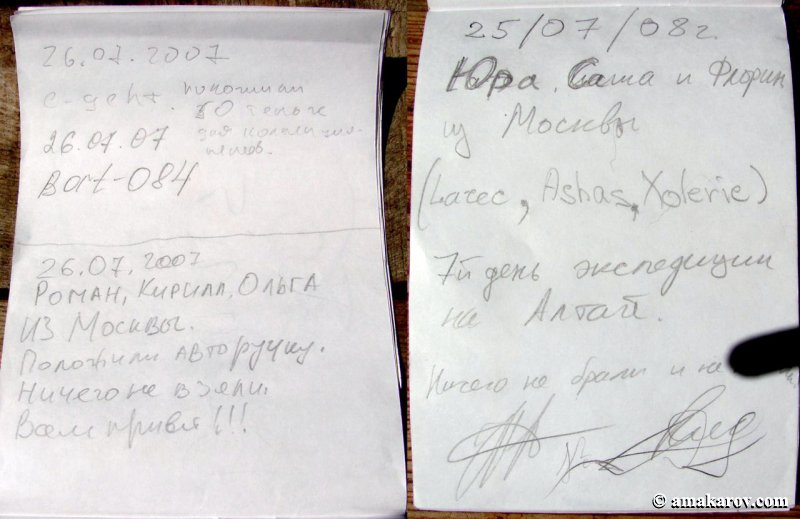 26.07.2007
e-gent. положили
50 теньге
26.07.07 для коллекцио-
неров.
Bart-084
26.07.2007
РОМАН, КИРИЛЛ, ОЛЬГА
ИЗ МОСКВЫ.
Положили авторучку.
Ничего не взяли.
Всем привет!!!
25/07/08г.
Юра, Саша и Флорин
из Москвы
(Larec, Asbas, Xolerie)
7й день экспедиции
на Алтай.
Ничего не брали и не
© amakarov.com